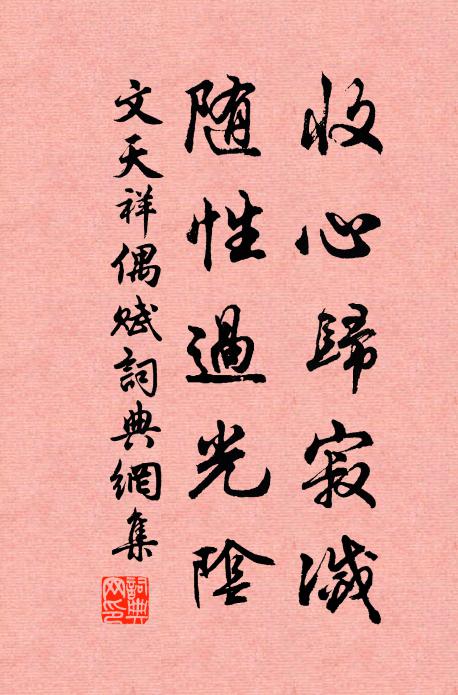 收心歸寂滅
随性過光陰
文天祥偶赋詞典網集
詞典網印